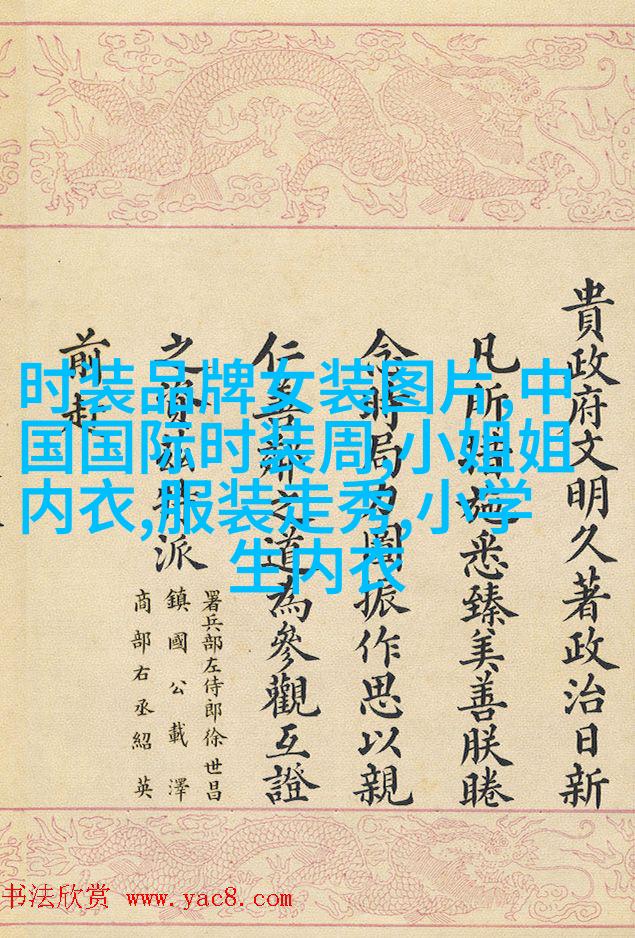 貴政府文明久著政治日新
凡所措施悉臻美善朕睠
念時局力圖振作思以親
仁善鄰之道為參觀互證
之資茲特派
署兵部左侍郎徐世昌
鎮國公載澤
商部右丞紹英
前赴
时装品牌女装图片,中
国国际时装周,小姐姐
内衣,服装走秀,小学
生内衣
书法欣赏 www.yac8.com